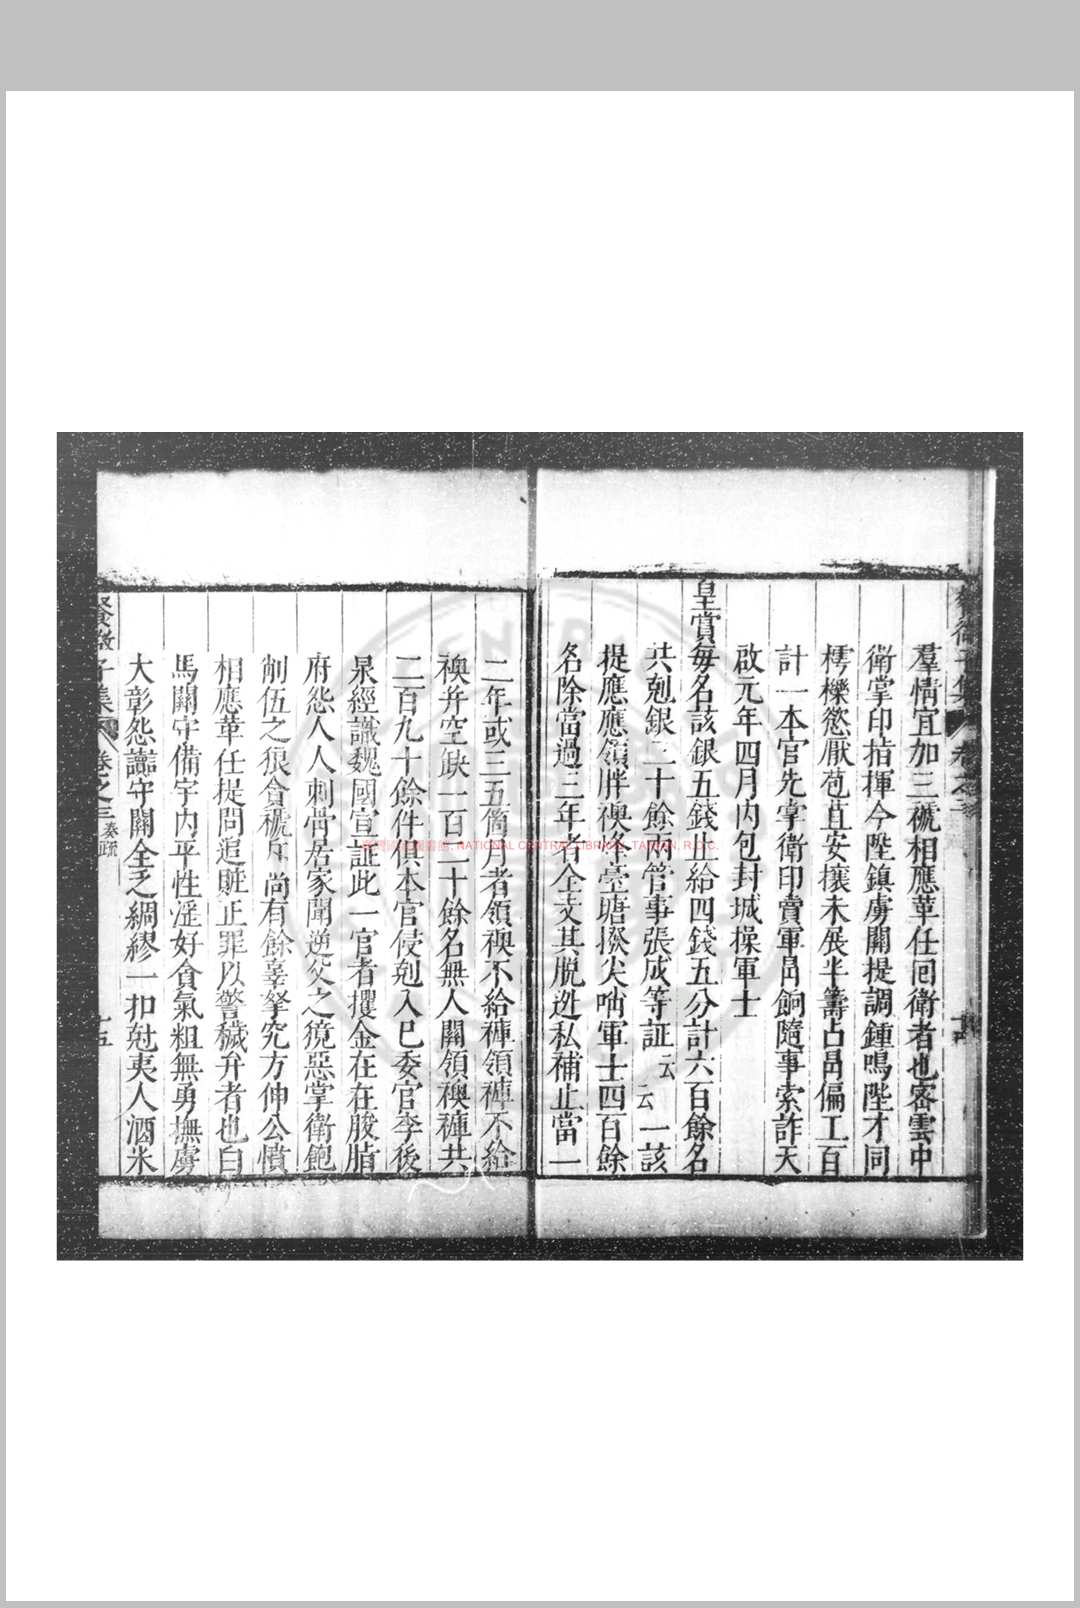 羣情宜加三褫相應革任囘衛者也密雲中
衛掌印指揮今陞鎮虜關提調鍾鳴陛才同
樗櫟慾厭苞苴安攘未展半籌占冐偏工百
計一本官先掌衛印賞軍冐餉隨事索詐天
啟元年四月內包封城操軍士
皇賞每名該銀五錢止給四錢五分計六百餘名
共剋銀三十餘兩管事張成等証云云一該
提應應領胖襖烽臺墩撥尖哨軍士四百餘
名除當過三年者全支其脫逃私補止當一
二年或三五箇月者領襖不給褲領褲不給
襖并空缺一百二十餘名無人關領襖褲共
二百九十餘件俱本官侵剋入己委官李後
泉經識魏國宣証此一官者攫金在在朘脂
府怨人人刺骨居家聞逆父之獍惡掌衛飽
削伍之狼貪褫斥尚有餘辜拏究方伸公憤
相應革任提問追賍正罪以警穢弁者也白
馬關守備宇內平性淫好貪氣粗無勇撫虜
大彰怨讟守關全乏綢繆一扣尅夷人酒米
餐微子集 卷之三 奏疏 十五
新聞國家圖書館, NATIONAL CENTRAL LIBRARY, TAIWAN, R.O.C.